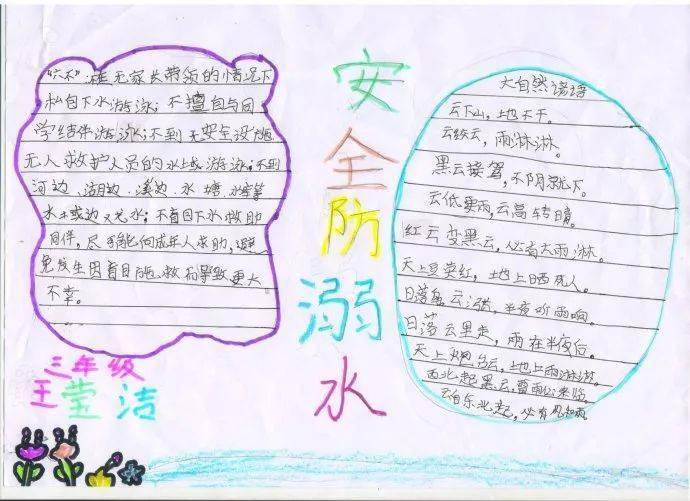 "六不":在无家长带领的情况下
私自下水游泳;不擅自与同
学结伴游泳;不到无安全设施
无人救护人员的水域游泳;不到
河边、湖边、溪边、水塘、水库等
水
不盲目下水救助
同伴,尽可能向成年人求助,避
免发生因盲目施救而导致更大
不幸。
三年级
王莹洁
安
全
防
溺
水
大自然谚语
云下山,地不干。
云绞云,雨淋淋。
黑云接驾,不阴就下。
云低要雨,云高转晴。
红云变黑云,必有大雨淋。
天上豆荚红,地上晒死人。
日落云涨,半夜听雨响。
日落云里走,雨在半夜后。
天上云,地上雨淋淋。
西北起黑云,雷雨必来临。
云自东北起,必有风和雨。